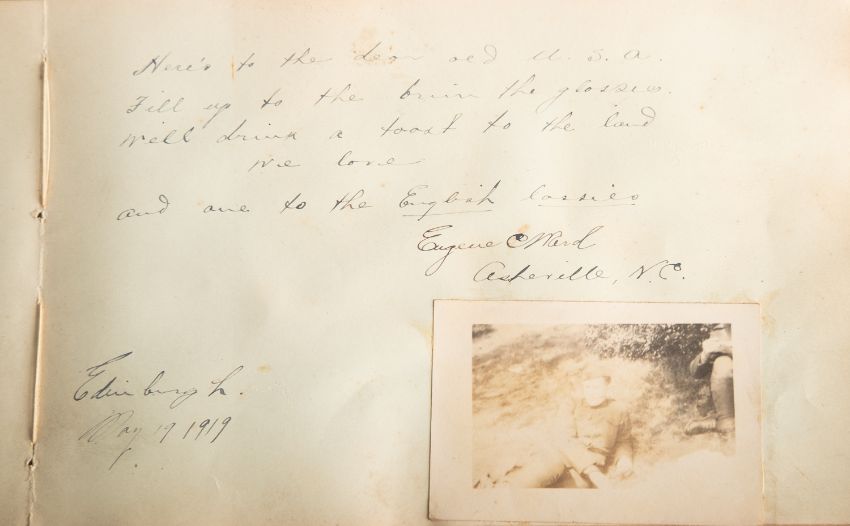 Here's to the dear old U.S.A.
Fill up to the brim the glasses.
We'll drink a toast to the land
we love
and one to the English lassies
Eugene C Ward
Asheville, N.C.
Edinburgh.
May 19 1919